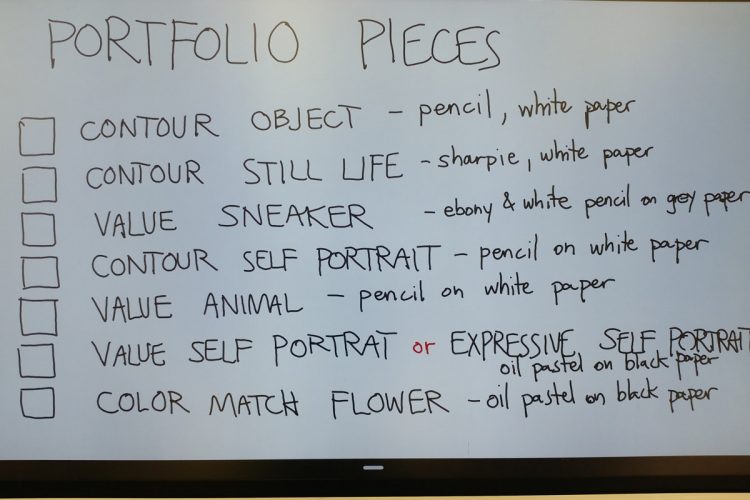 PORTFOLIO PIECES
CONTOUR OBJECT - pencil, white paper
CONTOUR STILL LIFE - sharpie, white paper
VALUE SNEAKER - ebony & white pencil on grey paper
CONTOUR SELF PORTRAIT - pencil on white paper
VALUE ANIMAL - pencil on white paper
VALUE SELF PORTRAT or EXPRESSIVE SELF PORTRAIT
oil pastel on black paper
COLOR MATCH FLOWER - oil pastel on black paper